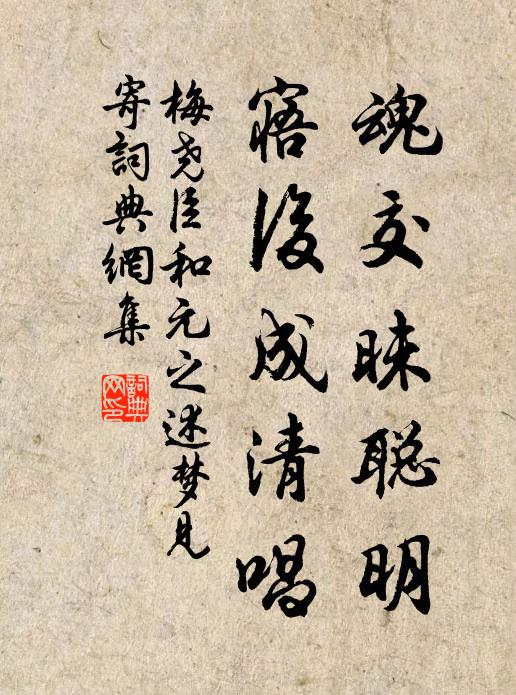 魂交昧聪明
寤後成清唱
梅尧臣和元之述梦见
寄詞典網集
詞典网印